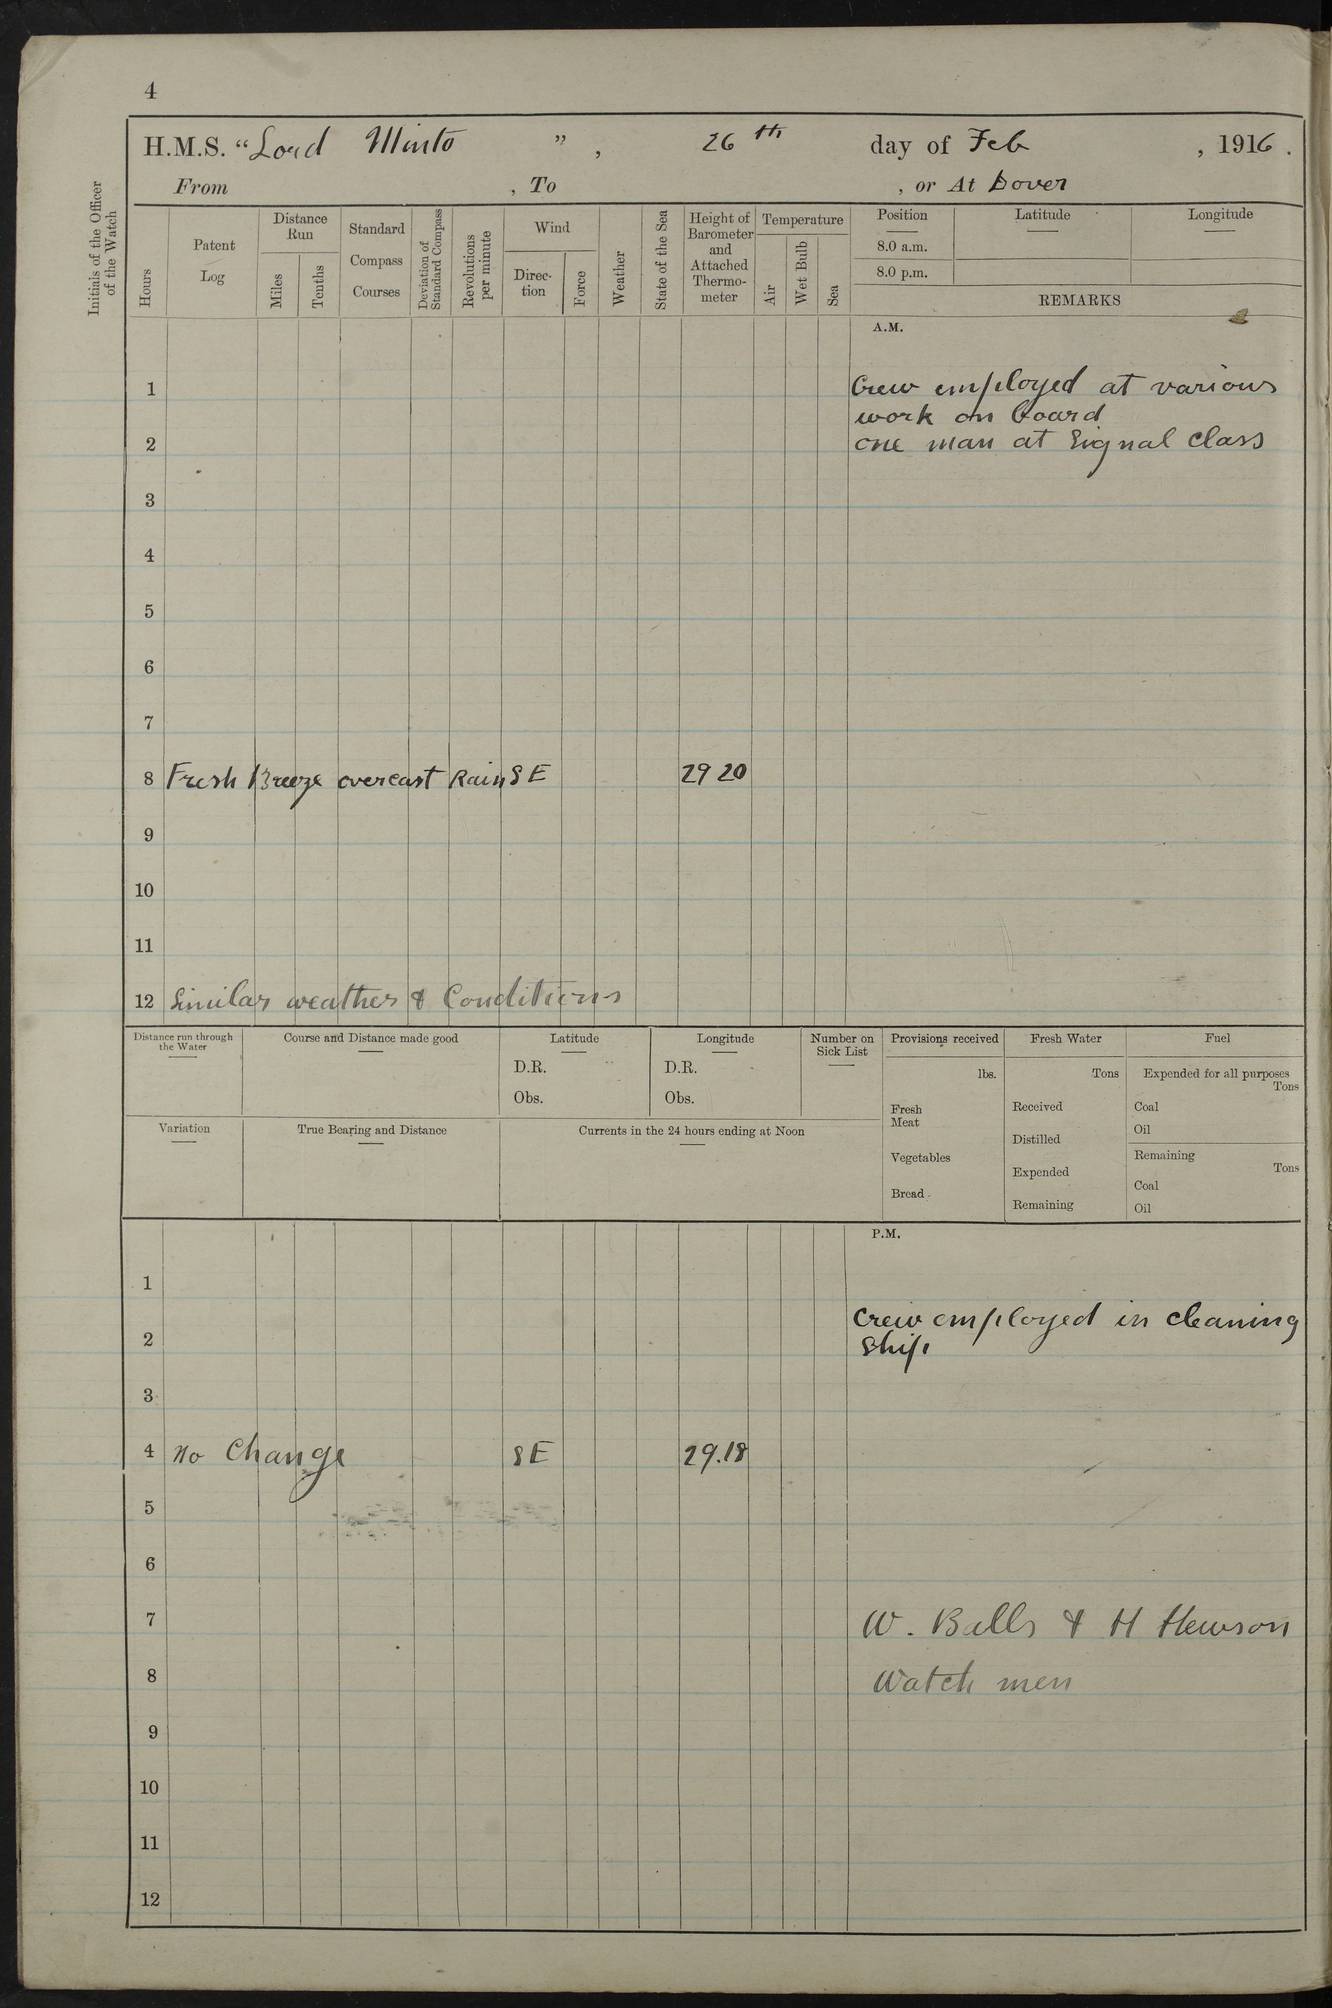 4
H.M.S. “Lord Minto ” , 26th day of Feb , 1916 .
From , To , or At Dover
Initials of the Officer of the Watch
Hours
Patent Log
Distance Run
Miles
Tenths
Standard Compass Courses
Deviation of Standard Compass
Revolutions per minute
Wind
Direc-tion
Force
Weather
State of the Sea
Height of Barometer and Attached Thermo-meter
Temperature
Air
Wet Bulb
Sea
Position Latitude Longitude
8.0 a.m.
8.0 p.m.
REMARKS
A.M.
1 Crew employed at various
work on board
2 one man at Signal Class
3
4
5
6
7
8 Fresh Breeze overcast Rain SE 29 20
9
10
11
12 Similar weather & Conditions
Distance run through the Water
Course and Distance made good
Latitude
D.R.
Obs.
Longitude
D.R.
Obs.
Number on Sick List
Variation
True Bearing and Distance
Currents in the 24 hours ending at Noon
Provisions received
lbs.
Fresh Meat
Vegetables
Bread
Fresh Water
Tons
Received
Distilled
Expended
Remaining
Fuel
Expended for all purposes
Tons
Coal
Oil
Remaining
Tons
Coal
Oil
P.M.
1
Crew employed in cleaning
2 Ship
3
4 No Change SE 29.18
5
6
7 W. Balls & H Hewson
8 Watch men
9
10
11
12